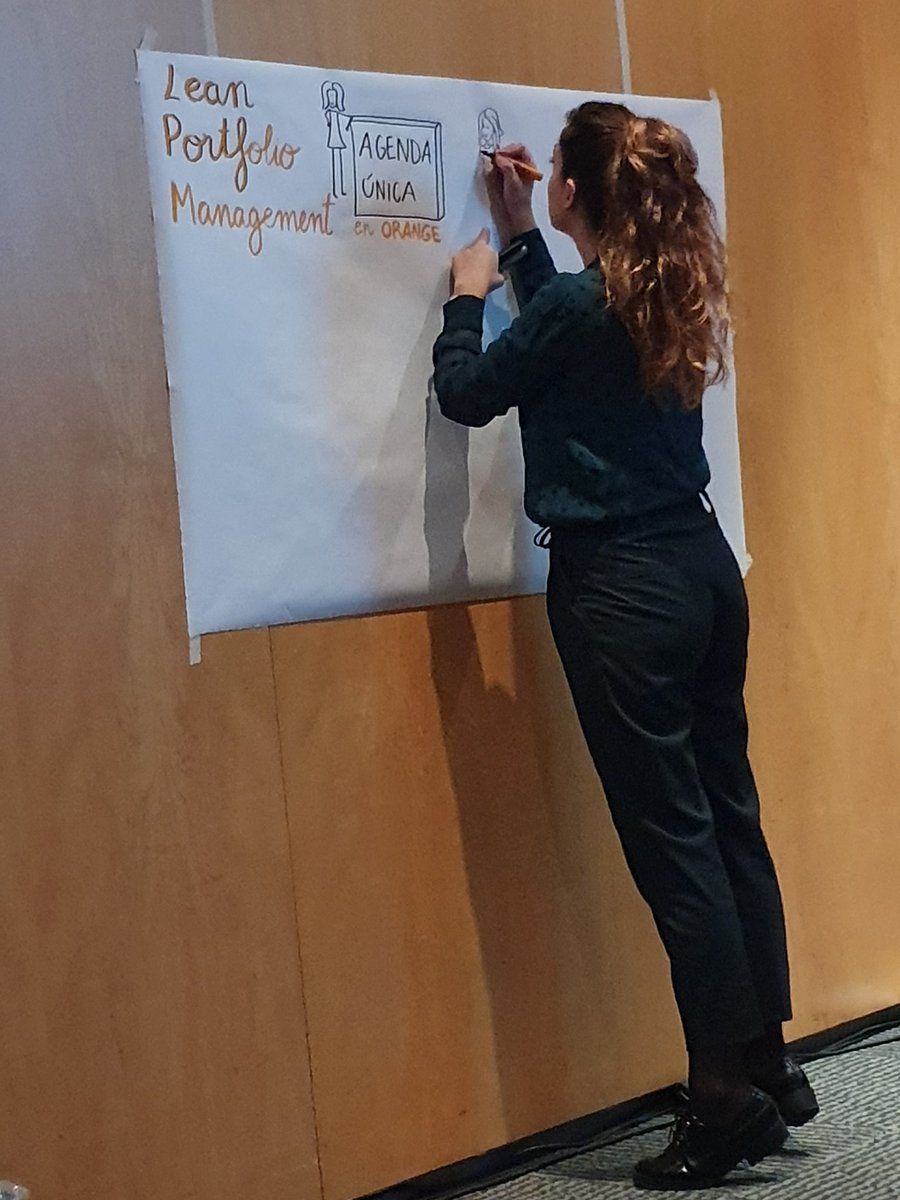 Lean
Portfolio
Management
AGENDA
ÚNICA
en ORANGE